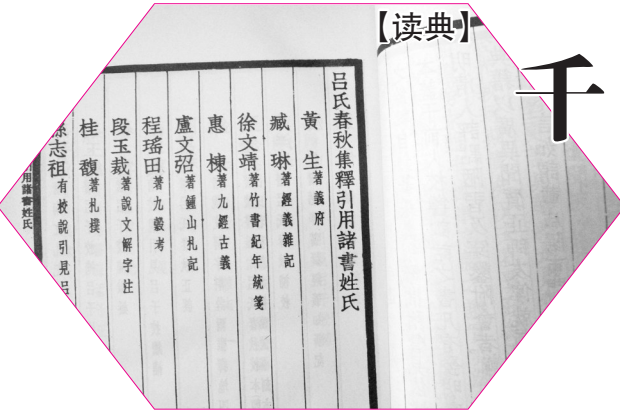 【读典】
千
呂氏春秋集釋引用諸書姓氏
黃生著義府
臧琳著經義雜記
徐文靖著竹書紀年統箋
惠棟著九經古義
盧文弨著鍾山札記
程瑤田著九穀考
段玉裁著說文解字注
桂馥著札樸
孫志祖有校說引見呂
用諸書姓氏